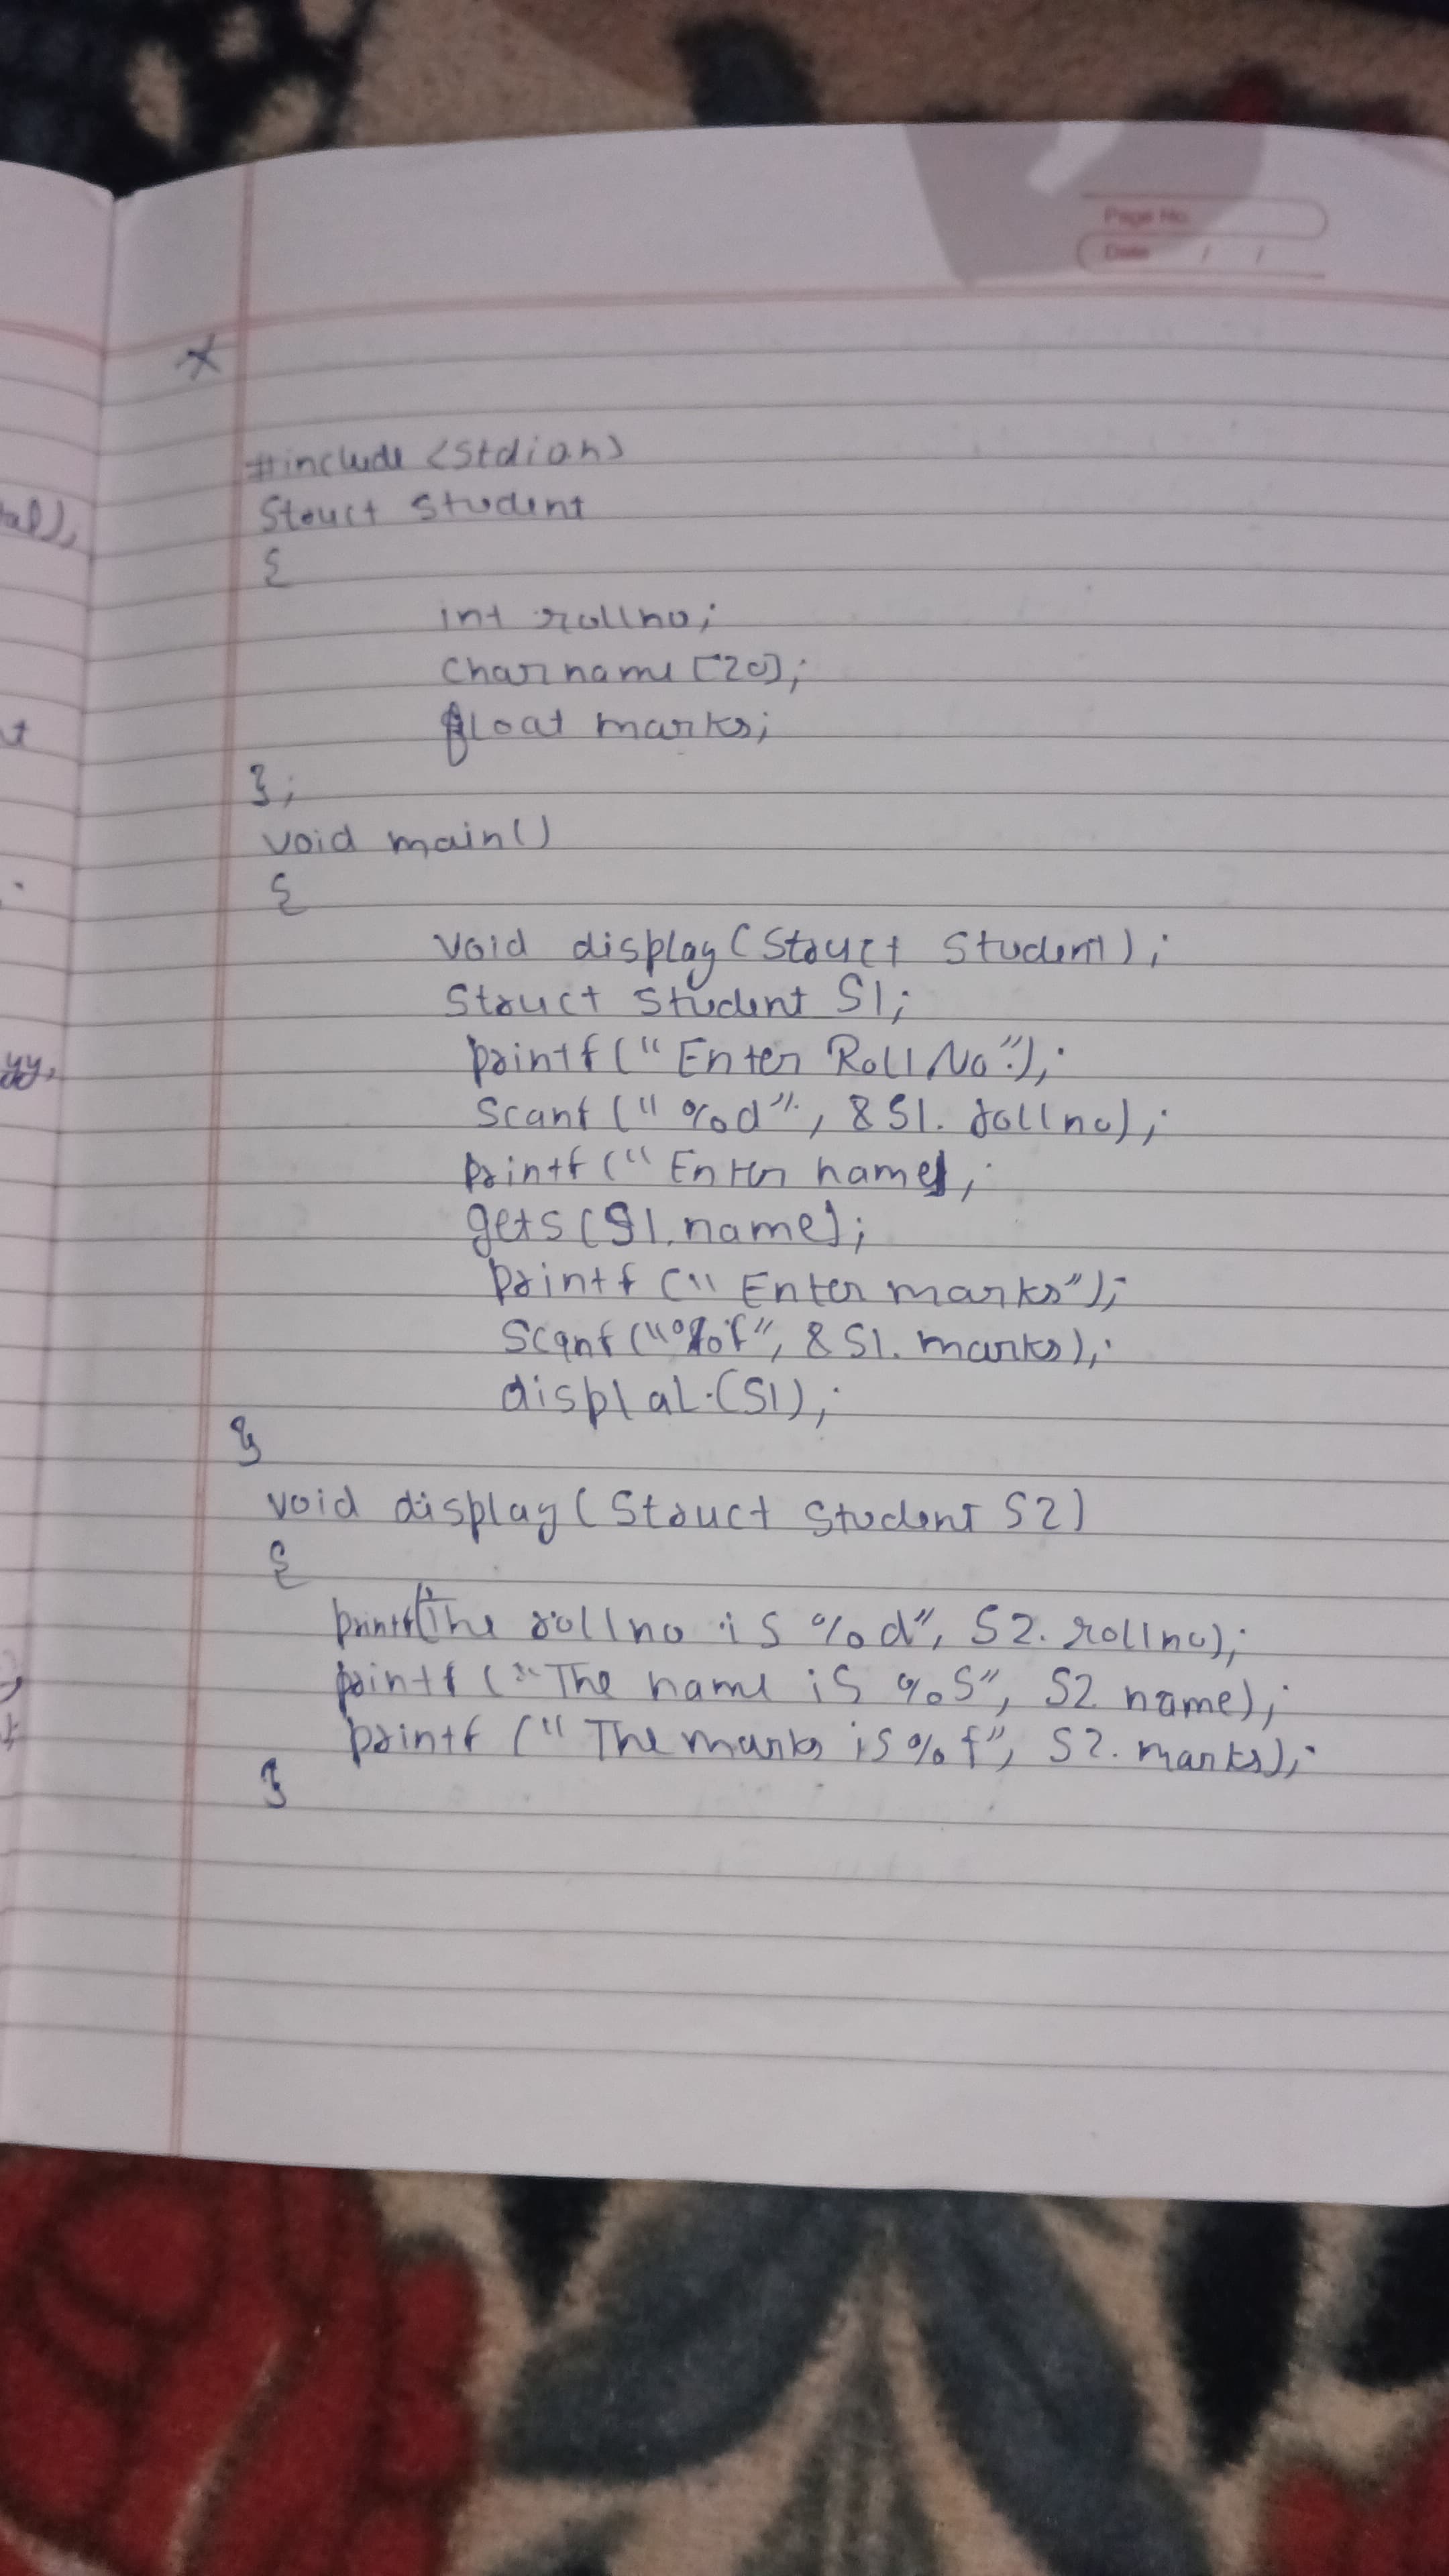 Page No.
Date / /
#include <stdioh>
Struct Student
{
int rollno;
Char name [20];
float marks;
};
void main()
{
void display(Struct Student);
Struct Student S1;
printf("Enter Roll No.");
Scanf("%d", &S1.rollno);
printf("Enter name);
gets(S1.name);
printf("Enter marks");
Scanf("%f", &S1.marks);
displaL.(S1);
}
void display(Struct Student S2)
{
printf("The rollno is %d", S2.rollno);
printf("The name is %S", S2 name);
printf("The marks is %f", S2.marks);
}